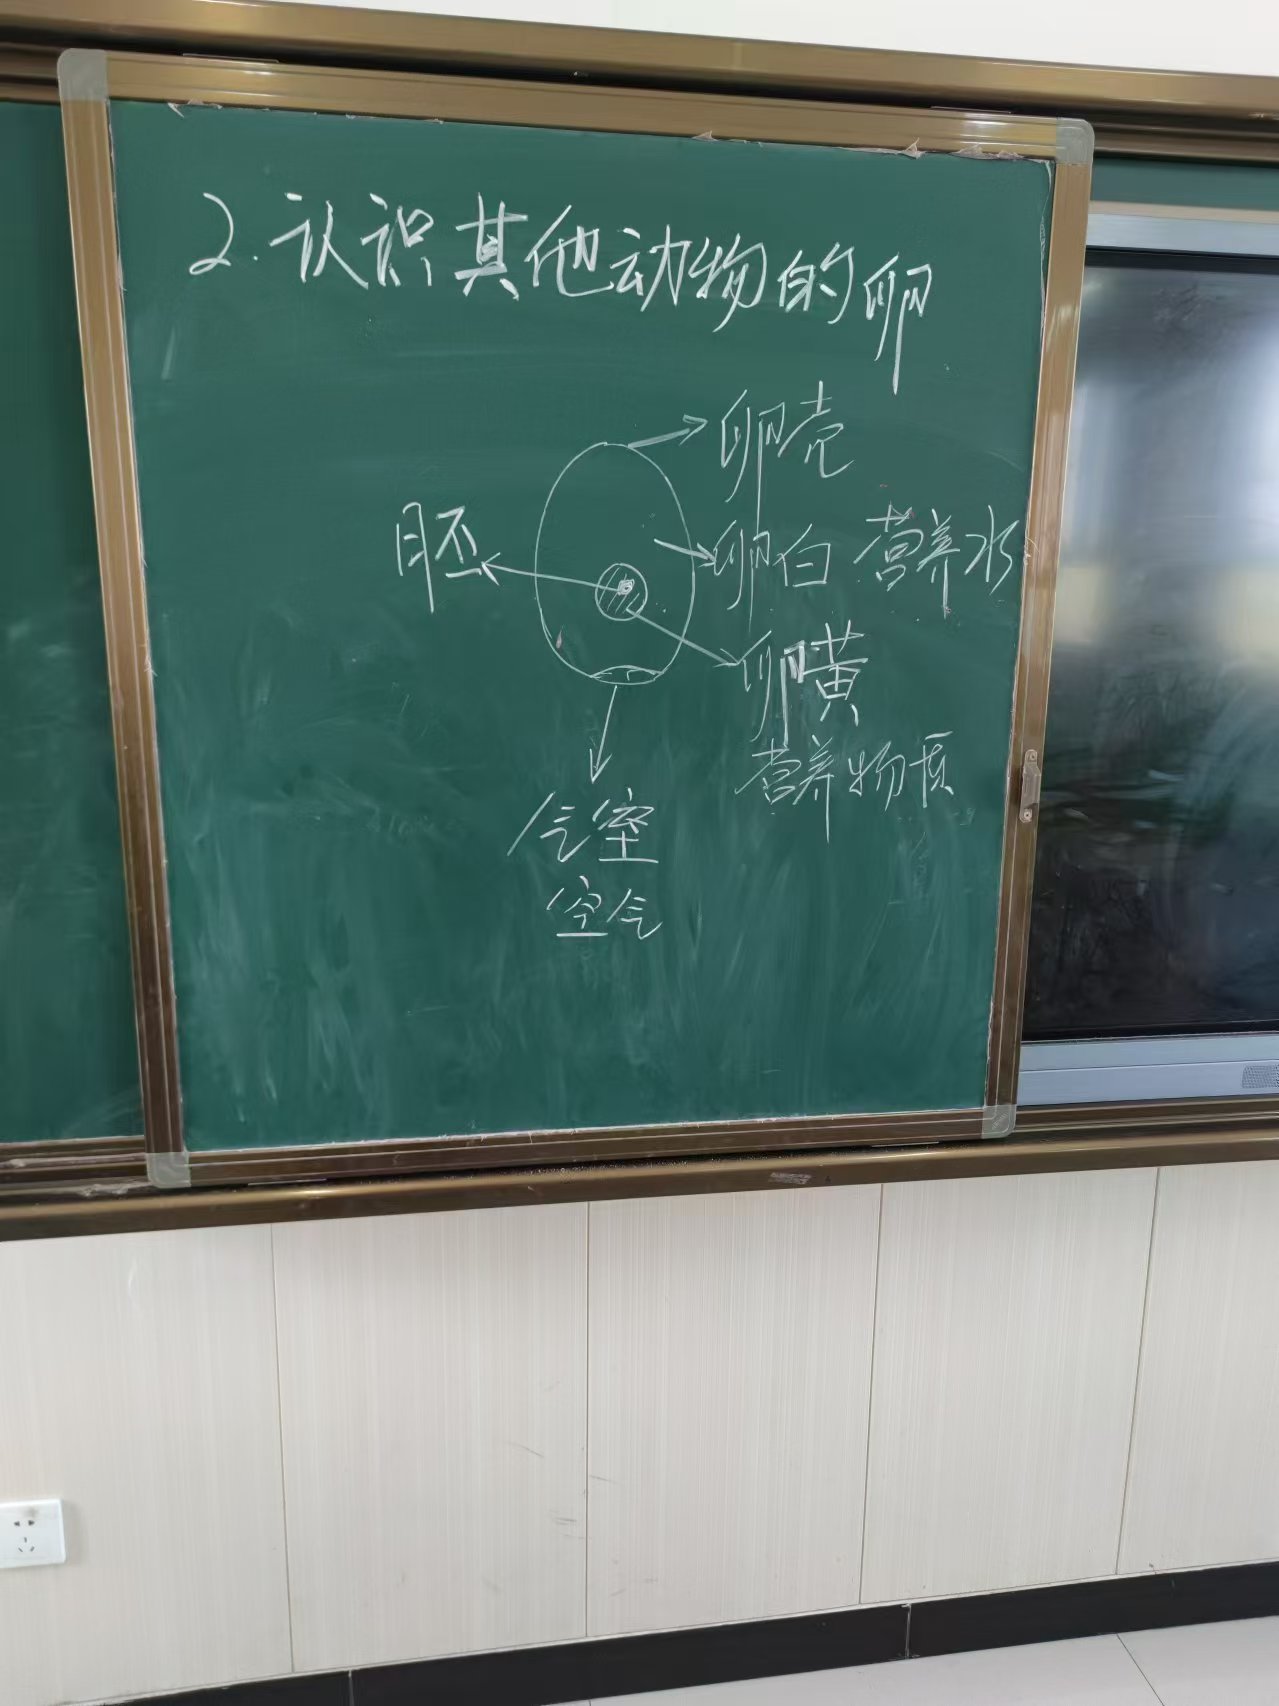 2.认识其他动物的卵
卵壳
胚
卵白 营养水
卵黄
营养物质
气室
空气